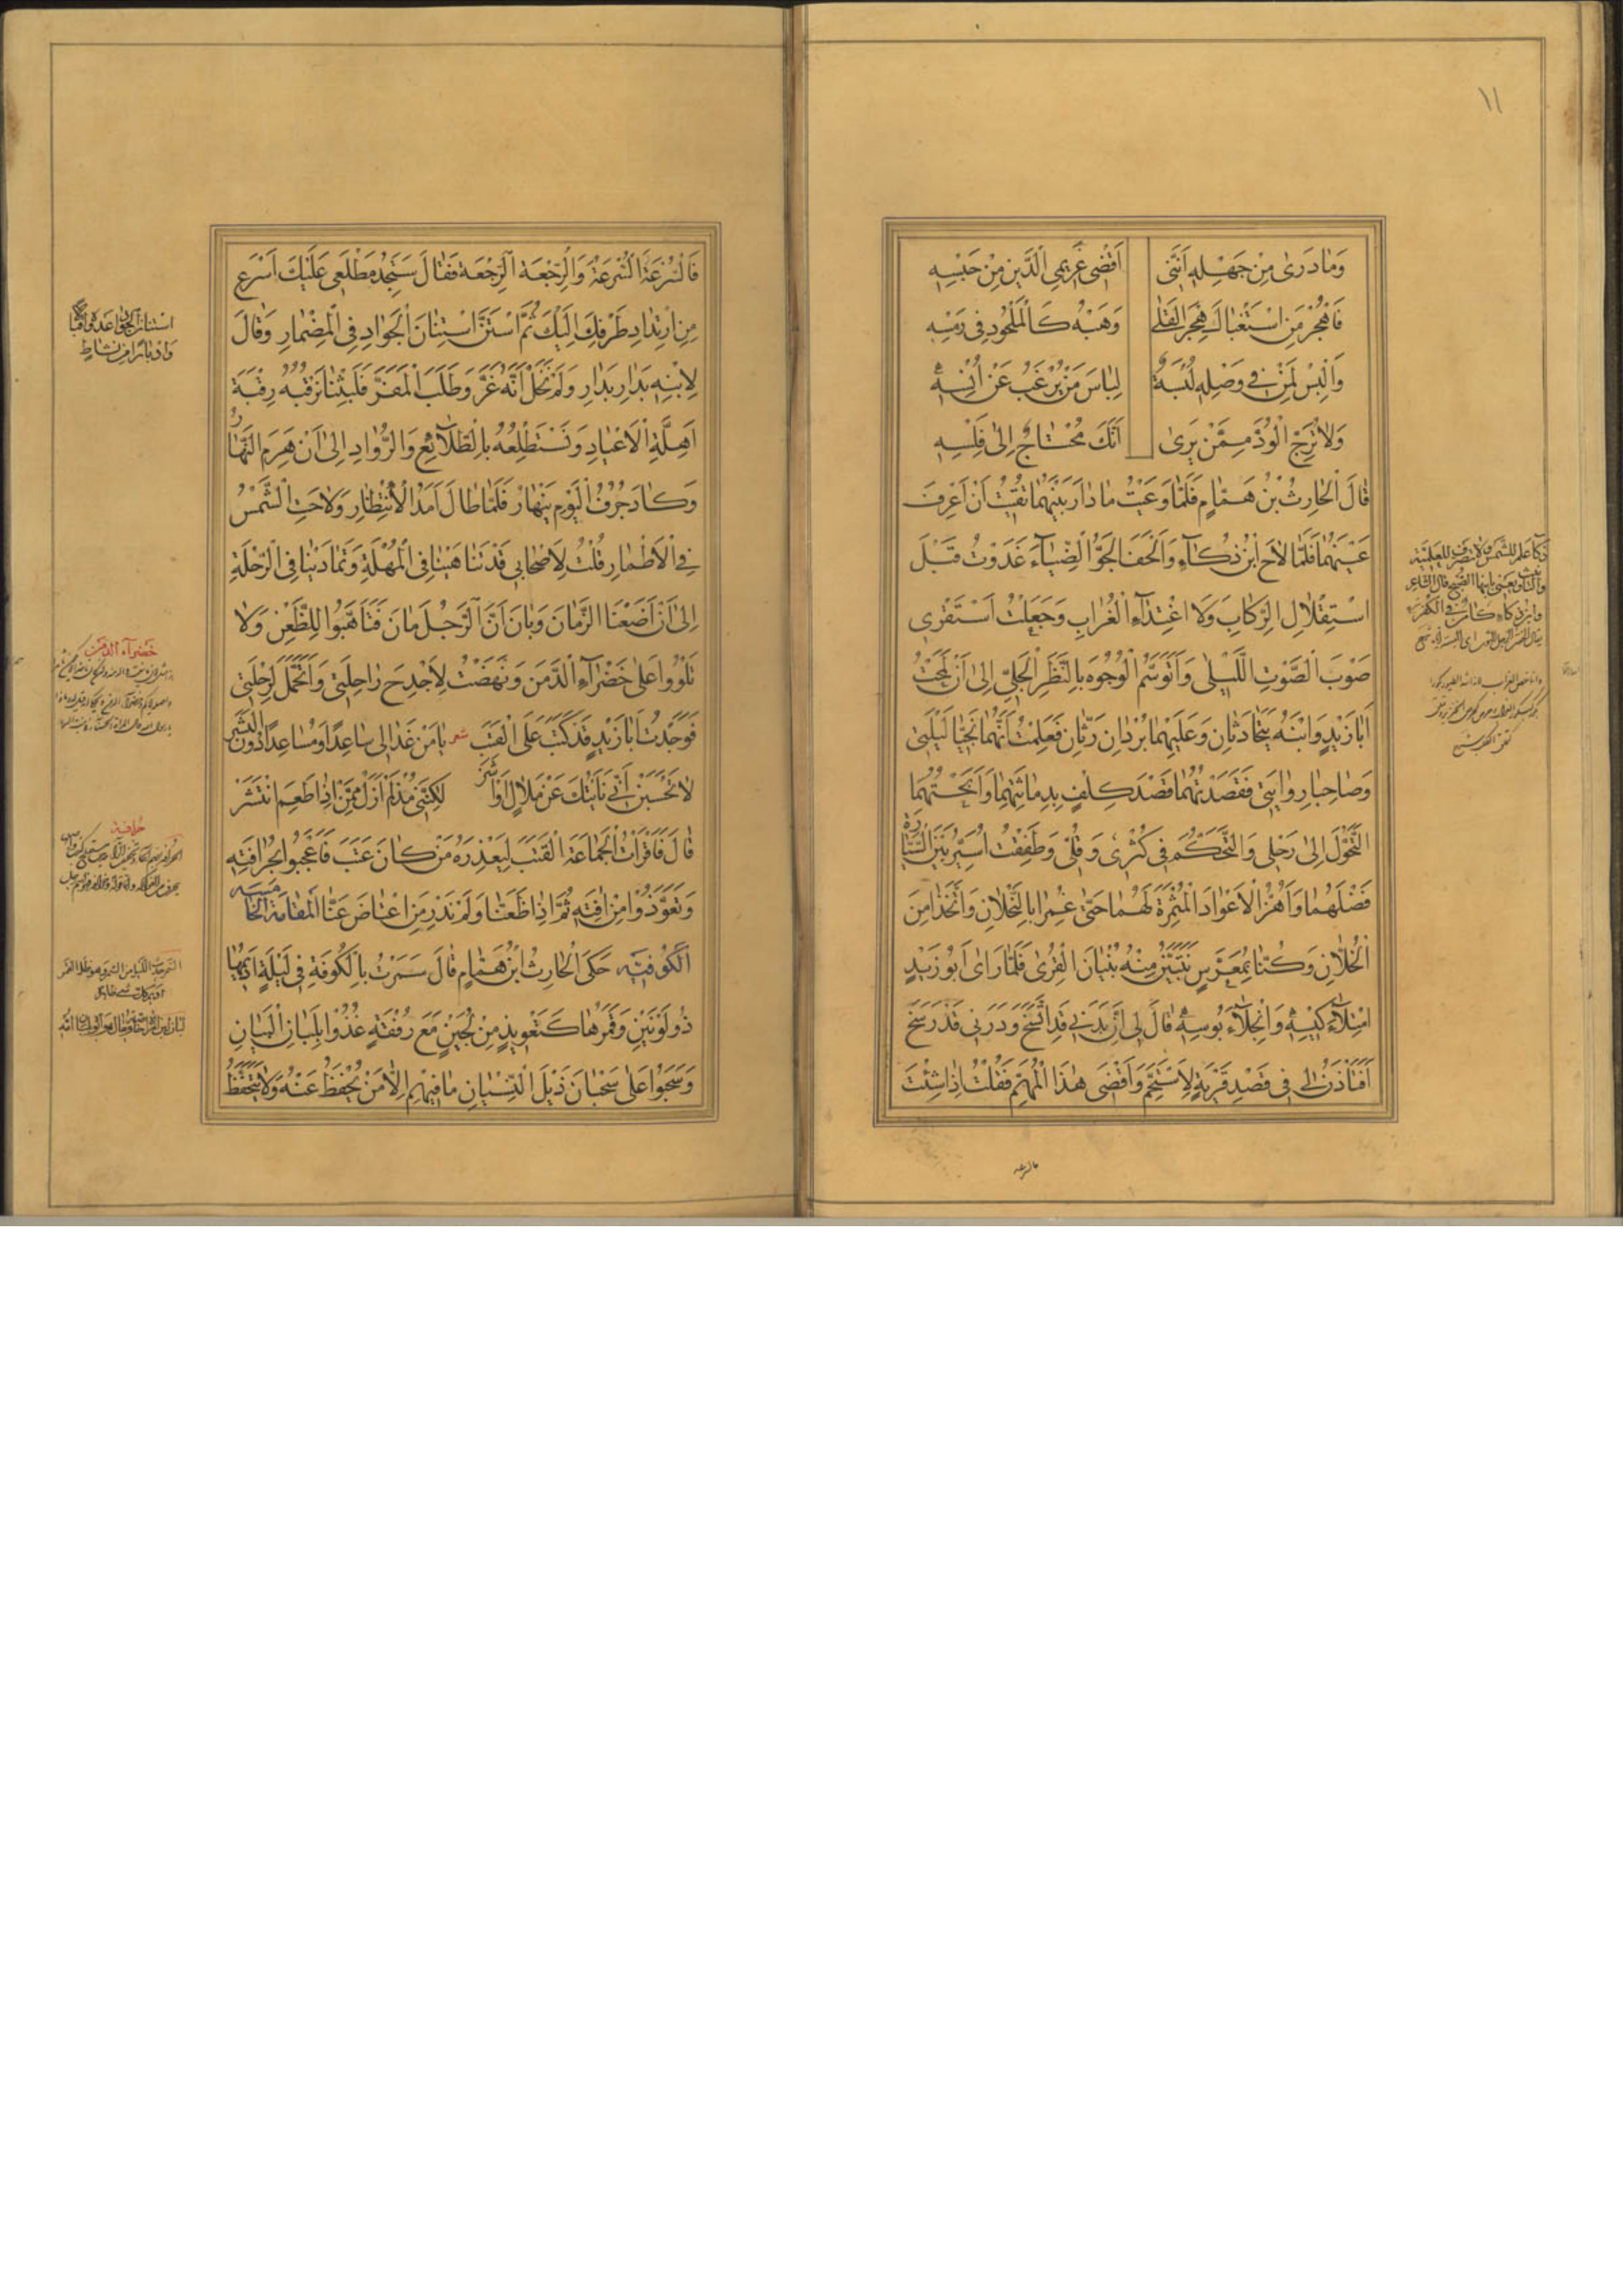 ١١
وَمَا دَرَىٰ مِنْ جَهْلِهِ اَنَّنِى اَقْضِى غَرِيمِى الدَّيْنَ مِنْ جِنْسِهِ
فَاهْجُرْ مَنِ اسْتَغْبَاكَ هَجْرَ الْقِلٰى وَهَبْهُ كَالْمَلْحُودِ فِى رَمْسِهِ
وَالْبِسْ لِمَنْ فِى وَصْلِهِ لُبْسَةٌ لِبَاسَ مَنْ يُرْغَبُ عَنْ اُنْسِهِ
وَلَا تُرَجِّ الْوُدَّ مِمَّنْ يَرَىٰ اَنَّكَ مُحْتَاجٌ اِلىٰ فَلْسِهِ
قَالَ الْحَارِثُ بْنُ هَمَّامٍ فَلَمَّا وَعَيْتُ مَا دَارَ بَيْنَهُمَا تُقْتُ اَنْ اَعْرِفَ
عَيْنَهُمَا فَلَمَّا لَاحَ ابْنُ ذُكَاءَ وَاَلْحَفَ الْجَوَّ الضِّيَاءَ غَدَوْتُ قَبْلَ
اسْتِقْلَالِ الرِّكَابِ وَلَا اغْتِدَاءَ الْغُرَابِ وَجَعَلْتُ اَسْتَقْرِى
صَوْبَ الصَّوْتِ اللَّيْلِى وَاَتَوَسَّمُ الْوُجُوهَ بِالنَّظَرِ الْجَلِىِّ اِلىٰ اَنْ لَمَحْتُ
اَبَا زَيْدٍ وَابْنَهُ يَتَحَادَثَانِ وَعَلَيْهِمَا بُرْدَانِ رَثَّانِ فَعَلِمْتُ اَنَّهُمَا نَجِيَّا لَيْلَتِى
وَصَاحِبَا رِوَايَتِى فَقَصَدْتُهُمَا قَصْدَ كَلِفٍ بِدَمَاثَتِهِمَا وَاَبَحْتُهُمَا
التَّحَوُّلَ اِلىٰ رَحْلِى وَالتَّحَكُّمَ فِى كُثْرِى وَقُلِّى وَطَفِقْتُ اُسَيِّرُ بَيْنَ السَّيَّارَةِ
فَضْلَهُمَا وَاَهُزُّ الْاَعْوَادَ الْمُثْمِرَةَ لَهُمَا حَتّىٰ غُمِرَا بِالنُّحْلَانِ وَاتُّخِذَا مِنَ
الْخُلَّانِ وَكُنَّا بِمُعَرَّسٍ نَتَبَيَّنُ مِنْهُ بُنْيَانَ الْقُرىٰ فَلَمَّا رَاىٰ اَبُو زَيْدٍ
امْتِلَاءَ كِيْسِهِ وَانْجِلَاءَ بُوسِهِ قَالَ لِى اِنَّ بَدَنِى قَدِ اتَّسَخَ وَدَرَنِى قَدْ رَسَخَ
اَفَتَاذَنُ لِى فِى قَصْدِ قَرْيَةٍ لِاَسْتَحِمَّ وَاَقْضِىَ هٰذَا الْمُهِمَّ فَقُلْتُ اِذَا شِئْتَ
فالسرعة
فَالسُّرْعَةَ السُّرْعَةَ وَالرَّجْعَةَ الرَّجْعَةَ فَقَالَ سَتَجِدُ مَطْلَعِى عَلَيْكَ اَسْرَعَ
مِنِ ارْتِدَادِ طَرْفِكَ اِلَيْكَ ثُمَّ اسْتَنَّ اسْتِنَانَ الْجَوَادِ فِى الْمِضْمَارِ وَقَالَ
لِابْنِهِ بَدَارِ بَدَارِ وَلَمْ نَخَلْ اَنَّهُ غَرَّ وَطَلَبَ الْمَفَرَّ فَلَبِثْنَا نَرْقُبُهُ رِقْبَةَ
اَهِلَّةِ الْاَعْيَادِ وَنَسْتَطْلِعُهُ بِالطَّلَائِعِ وَالرُّوَّادِ اِلىٰ اَنْ هَرِمَ النَّهَارُ
وَكَادَ جُرُفُ الْيَوْمِ يَنْهَارُ فَلَمَّا طَالَ اَمَدُ الْاِنْتِظَارِ وَلَاحَتِ الشَّمْسُ
فِى الْاَطْمَارِ قُلْتُ لِاَصْحَابِى قَدْ تَنَاهَيْنَا فِى الْمُهْلَةِ وَتَمَادَيْنَا فِى الرِّحْلَةِ
اِلىٰ اَنْ اَضَعْنَا الزَّمَانَ وَبَانَ اَنَّ الرَّجُلَ مَانَ فَتَاَهَّبُوا لِلظَّعْنِ وَلَا
تَلْوُوا عَلىٰ خَضْرَاءِ الدِّمَنِ وَنَهَضْتُ لِاَحْدِجَ رَاحِلَتِى وَاَتَحَمَّلَ لِرِحْلَتِى
فَوَجَدْتُ اَبَا زَيْدٍ قَدْ كَتَبَ عَلَى الْقَتَبِ شعر يَا مَنْ غَدَا لِى سَاعِدًا وَمُسَاعِدًا دُونَ الْبَشَرْ
لَا تَحْسَبَنْ اَنِّى نَايْتُكَ عَنْ مَلَالٍ اَوْ اَشَرْ لٰكِنَّنِى مُذْ لَمْ اَزَلْ مِمَّنْ اِذَا طَعِمَ انْتَشَرْ
قَالَ فَاَقْرَاْتُ الْجَمَاعَةَ الْقَتَبَ لِيَعْذِرَهُ مَنْ كَانَ عَتَبَ فَاُعْجِبُوا بِخُرَافَتِهِ
وَتَعَوَّذُوا مِنْ اٰفَتِهِ ثُمَّ اِنَّا ظَعَنَّا وَلَمْ نَدْرِ مَنِ اعْتَاضَ عَنَّا الْمَقَامَةُ الْخَامِسَةُ
الْكُوفِيَّةُ حَكَى الْحَارِثُ ابْنُ هَمَّامٍ قَالَ سَمَرْتُ بِالْكُوفَةِ فِى لَيْلَةٍ اَدِيمُهَا
ذُو لَوْنَيْنِ وَقَمَرُهَا كَتَعْوِيذٍ مِنْ لُجَيْنٍ مَعَ رُفْقَةٍ غُذُوا بِلِبَانِ الْبَيَانِ
وَسَحَبُوا عَلىٰ سَحْبَانَ ذَيْلَ النِّسْيَانِ مَا فِيهِمْ اِلَّا مَنْ يُحْفَظُ عَنْهُ وَلَا يُتَحَفَّظُ
خضراء الدمن
خرافة